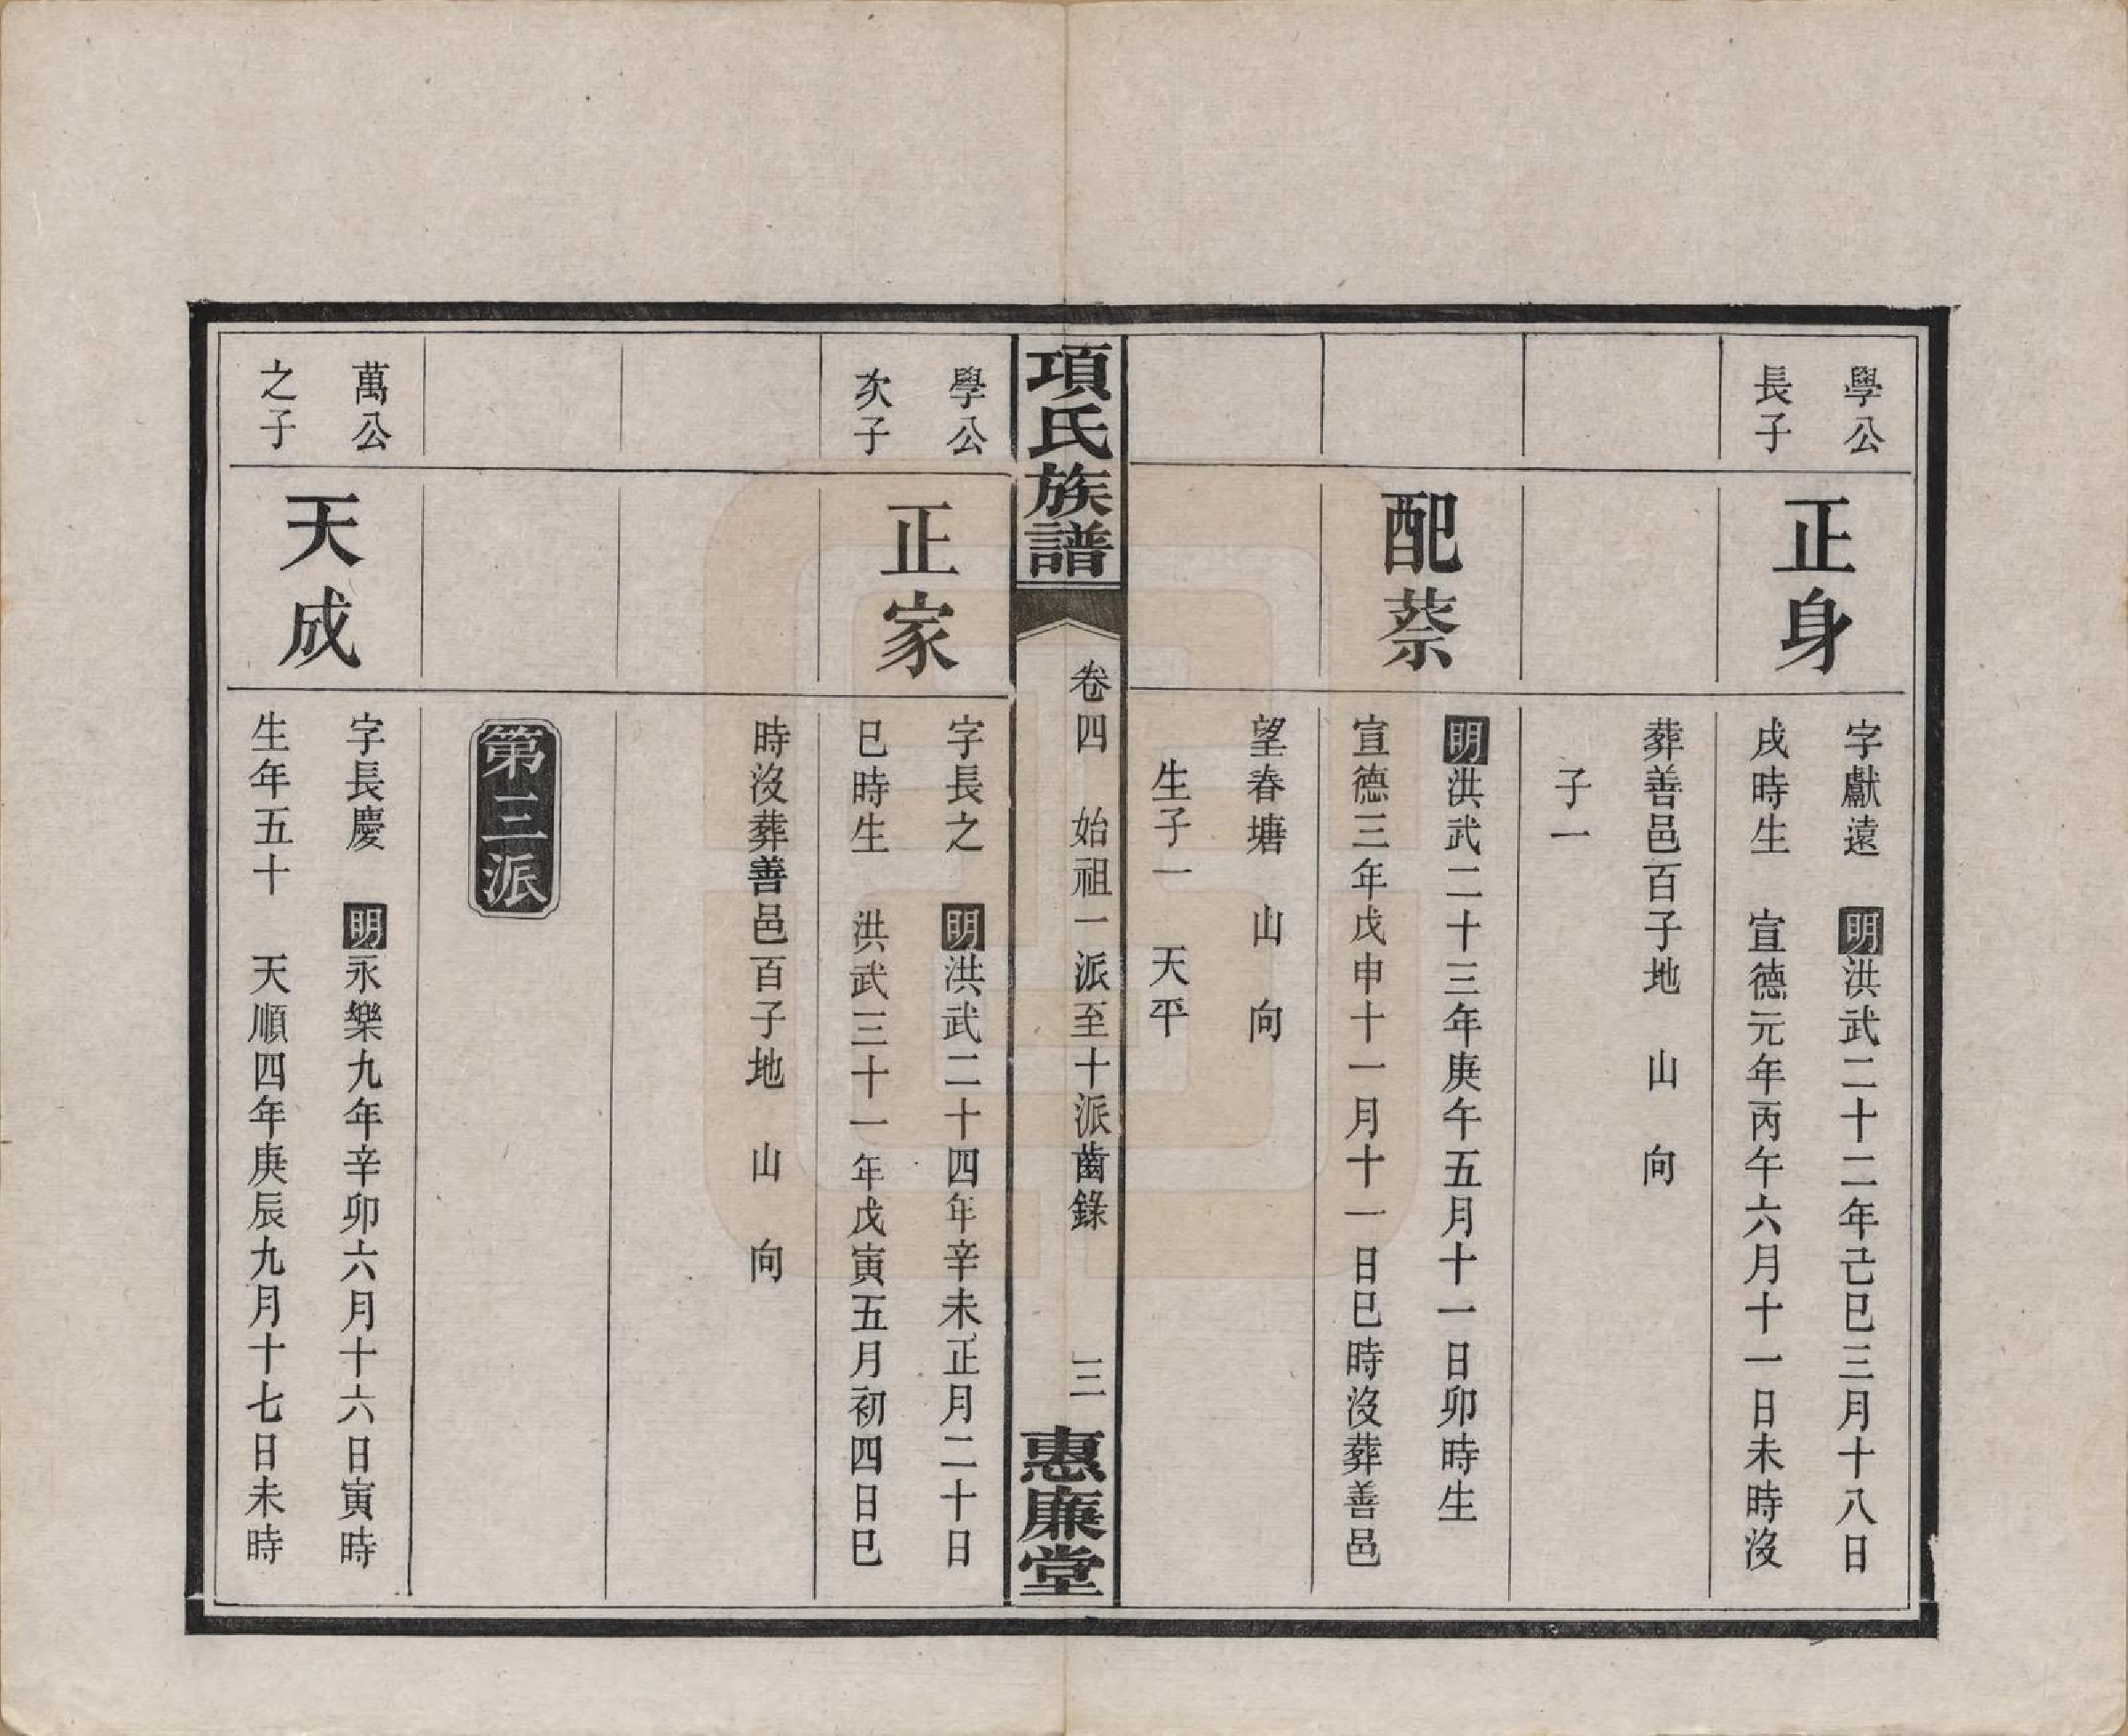 學公
長子
正身
字獻遠　明洪武二十二年己巳三月十八日
戌時生　宣德元年丙午六月十一日未時沒
葬善邑百子地　山　向
子一
配蔡
明洪武二十三年庚午五月十一日卯時生
宣德三年戊申十一月十一日巳時沒葬善邑
望春塘　山　向
生子一　天平
項氏族譜
卷四　始祖一派至十派齒錄
三
惠廉堂
學公
次子
正家
字長之　明洪武二十四年辛未正月二十日
巳時生　洪武三十一年戊寅五月初四日巳
時沒葬善邑百子地　山　向
第三派
萬公
之子
天成
字長慶　明永樂九年辛卯六月十六日寅時
生年五十　天順四年庚辰九月十七日未時